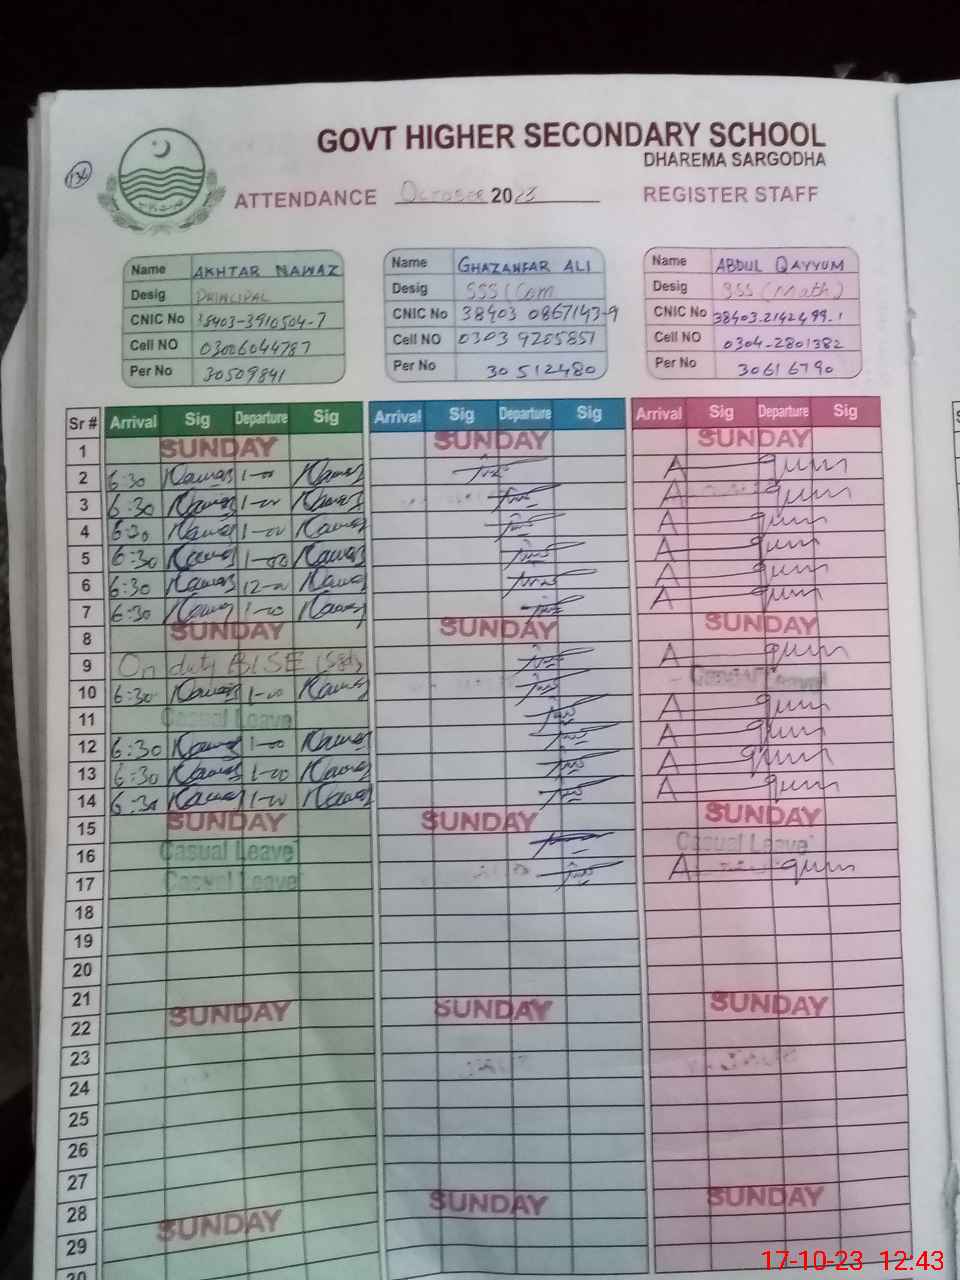 GOVT HIGHER SECONDARY SCHOOL
DHAREMA SARGODHA
136
ATTENDANCE October 2023 REGISTER STAFF
Name AKHTAR NAWAZ
Desig PRINCIPAL
CNIC No 38403-3910504-7
Cell NO 03006044787
Per No 30509841
Name GHAZANFAR ALI
Desig SSS (Com
CNIC No 38403 0867143-9
Cell NO 0303 9205851
Per No 30512480
Name ABDUL QAYYUM
Desig SSS (Math)
CNIC No 38403-2142499-1
Cell NO 0304-2801382
Per No 30616790
Sr # Arrival Sig Departure Sig Arrival Sig Departure Sig Arrival Sig Departure Sig
1 SUNDAY SUNDAY SUNDAY
2 6:30 Nawaz 1-00 Nawaz A
3 6:30 Nawaz 1-00 Nawaz A
4 6:30 Nawaz 1-00 Nawaz A
5 6:30 Nawaz 1-00 Nawaz A
6 6:30 Nawaz 12-00 Nawaz A
7 6:30 Nawaz 1-00 Nawaz A
8 SUNDAY SUNDAY SUNDAY
9 On duty BISE (Sgd) A
10 6:30 Nawaz 1-00 Nawaz Casual Leave
11 Casual Leave A
12 6:30 Nawaz 1-00 Nawaz A
13 6:30 Nawaz 1-00 Nawaz A
14 6:30 Nawaz 1-00 Nawaz A
15 SUNDAY SUNDAY SUNDAY
16 Casual Leave Casual Leave
17 Casual Leave A
18
19
20
21
22 SUNDAY SUNDAY SUNDAY
23
24
25
26
27
28
29 SUNDAY SUNDAY SUNDAY
30
17-10-23 12:43